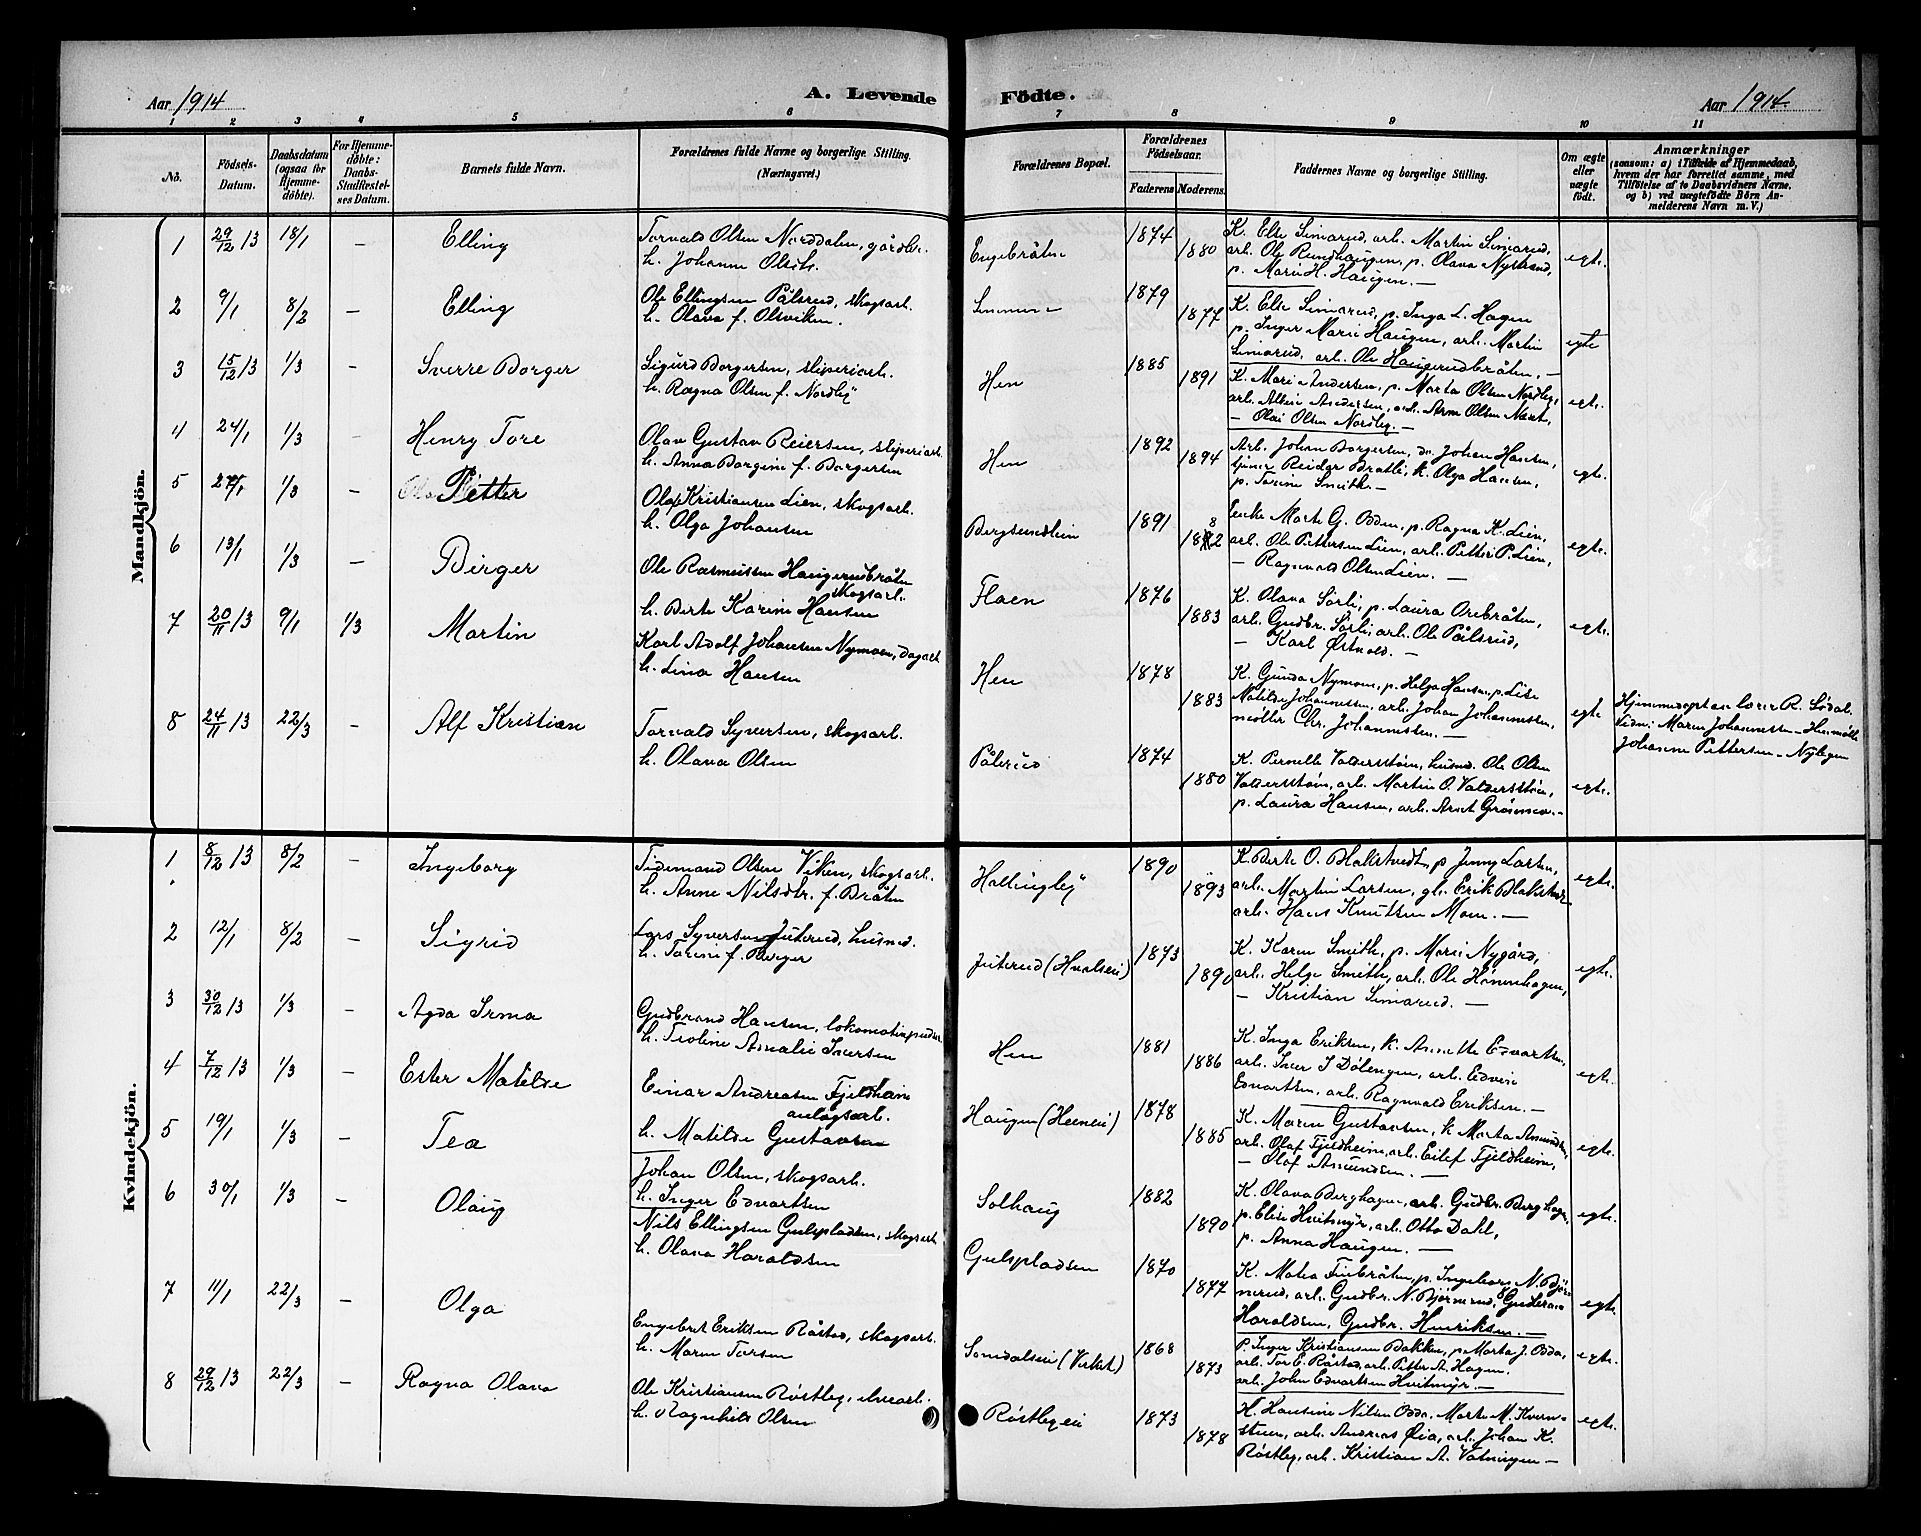 Aar 1914
A. Levende
Födte.
Aar 1914
1 2 3 4 5 6
7 8 9 10 11
No.
Födsels-
Datum.
Daabsdatum
(ogsaa for
Hjemme-
döbte).
For Hjemme-
döbte:
Daabs-
Stadfæstel-
ses Datum.
Barnets fulde Navn.
Forældrenes fulde Navne og borgerlige Stilling.
(Næringsvei.)
Forældrenes Bopæl.
Forældrenes
Födselsaar.
Faderens. Moderens.
Faddernes Navne og borgerlige Stilling.
Om ægte
eller
uægte
født.
Anmærkninger
(saasom: a) i Tilfælde af Hjemmedaab,
hvem der har forrettet samme, med
Tilföielse af to Daabsvidners Navne,
og b) ved uægtefödte Börn An-
melderens Navn m. V.)
Mandkjön.
1 29/12 13 18/1 – Elling
Torvald Olsen Norddalen, gårdbr.
h. Johanne Olsdtr.
Engebråten 1874 1880
K. Else Simarud, arb. Martin Simarud,
arb. Ole Rundhaugen, p. Olava Nystrand,
p. Marie H. Haugen. –
egte.
2 9/1 8/2 – Elling
Ole Ellingsen Pålsrud, skogsarb.
h. Olava f. Olsviken.
1879 1877
K. Else Simarud, p. Inga L. Hagen
p. Inger Marie Haugen, arb. Martin
Simarud, arb. Ole Haugerudbråten. –
egte
3 15/12 13 1/3 – Sverre Borger
Sigurd Borgersen, sliperiarb.
h. Ragna Olsen f. Nordby
Hen 1885 1891
K. Marie Andersen, p. Marta Olsen Nordby,
arb. Albin Andersen, arb. Arne Olsen Næset,
– Olai Olsen Nordby. –
egte.
4 24/1 1/3 – Henry Tore
Olav Gustav Reiersen, sliperiarb.
h. Anna Borgine f. Borgersen
Hen 1892 1894
Arb. Johan Borgersen, do. Johan Hansen,
tjener Reidar Bratli, k. Olga Hansen,
p. Torine Smith. –
egte.
5 27/1 1/3 – Petter
Olaf Kristiansen Lien, skogsarb.
h. Olga Johansen
Bergsundlien 1891 1882
Enke Marte G. Odden, p. Ragna K. Lien,
arb. Ole Pettersen Lien, arb. Petter P. Lien,
– Ragnvald Olsen Lien. –
egte.
6 13/1 1/3 – Birger
Ole Rasmussen Haugerudbråten
skogsarb.
h. Berte Karine Hansen
Flaen 1876 1883
K. Olava Sörli, p. Laura Orebråten,
arb. Gudbr. Sörli, arb. Ole Pålsrud,
– Karl Østvold. –
egte.
7 20/11 13 9/1 1/3 Martin
Karl Adolf Johansen Nymoen, dagarb.
h. Lina Hansen
Hen 1878 1883
K. Gunda Nymoen, p. Helga Hansen, p. Lise
Matilde Johannessen, arb. Johan Johannessen,
møller Chr. Johannesen. –
egte
Hjemmedöpt av lærer R. Södal.
Vidn: Maren Johannessen – Henmölle
Johanne Pettersen – Nylegen
8 24/11 13 22/3 – Alf Kristian
Torvald Syversen, skogsarb.
h. Olava Olsen
Pålsrud 1874 1880
K. Pernelle Valdersstøen, husmd. Ole Olsen
Valdersstøen, arb. Martin O. Valdersstøen,
p. Laura Hansen, arb. Arnt Grönmoen. –
egte.
Kvindekjön.
1 8/12 13 8/2 – Ingeborg
Tidemand Olsen Viken, skogsarb.
h. Anne Nilsdtr. f. Bråten
Hallingby 1890 1893
K. Berte O. Blakstvedt, p. Jenny Larsen,
arb. Martin Larsen, gb. Erik Blakstvedt
arb. Hans Knutsen Moen. –
egte.
2 12/1 8/2 – Sigrid
Lars Syversen Juterud, husmd.
h. Torine f. Berger
Juterud (Hvalseie) 1873 1890
K. Karen Smith, p. Marie Nygård,
arb. Helge Smith, arb. Ole Hönenhagen,
– Kristian Simarud. –
egte.
3 30/12 13 1/3 – Agda Irma
Gudbrand Hansen, lokomotivpudser
h. Teoline Amalie Iversen
Hen 1881 1886
K. Inga Eriksen, k. Annette Edvartsen,
arb. Iver I Dölengen, arb. Edvin
Edvartsen, arb. Ragnvald Eriksen. –
egte.
4 7/12 13 1/3 – Ester Matilde
Einar Andreasen Fjeldheim
anlægsarb.
h. Matilde Gustavsen
Haugen (Heneneie) 1878 1885
K. Maren Gustavsen, k. Marta Amundsen,
arb. Olaf Fjeldheim, arb. Eilef Fjeldheim,
– Olaf Amundsen. –
egte.
5 19/1 1/3 – Tea
Johan Olsen, skogsarb.
h. Inger Edvartsen
Solhaug 1882 1890
K. Olava Berghagen, arb. Gudbr. Berghagen,
p. Elise Hvitmyr, arb. Otto Dahl,
p. Anna Haugen. –
egte.
6 30/1 1/3 – Olaug
Nils Ellingsen Gulspladsen, skogsarb.
h. Olava Haraldsen
Gulspladsen 1870 1877
K. Matea Finbråten, p. Ingeborg N. Björ-
nerud, arb. Gudbr. N. Björnerud,
Haraldsen, Gudbr. Henriksen. –
egte.
7 11/1 22/3 – Olga
Engebret Eriksen Råstad, skogsarb.
h. Maren Torsen
Somdalseie (Viket) 1868 1873
P. Inger Kristiansen Bakken, p. Marta J. Odda,
arb. Tor E. Råstad, arb. Petter A. Hagen,
arb. John Edvartsen Hvitmyr. –
egte.
8 29/12 13 22/3 – Ragna Olava
Ole Kristiansen Røstleg, elvearb.
h. Ragnhild Olsen
Røstlegeie 1873 1878
K. Hansine Nilsen Odda, Marte M. Kvern-
stuen, arb. Andreas Øia, arb. Johan K.
Røstleg, arb. Kristian A. Vatningen –
egte.